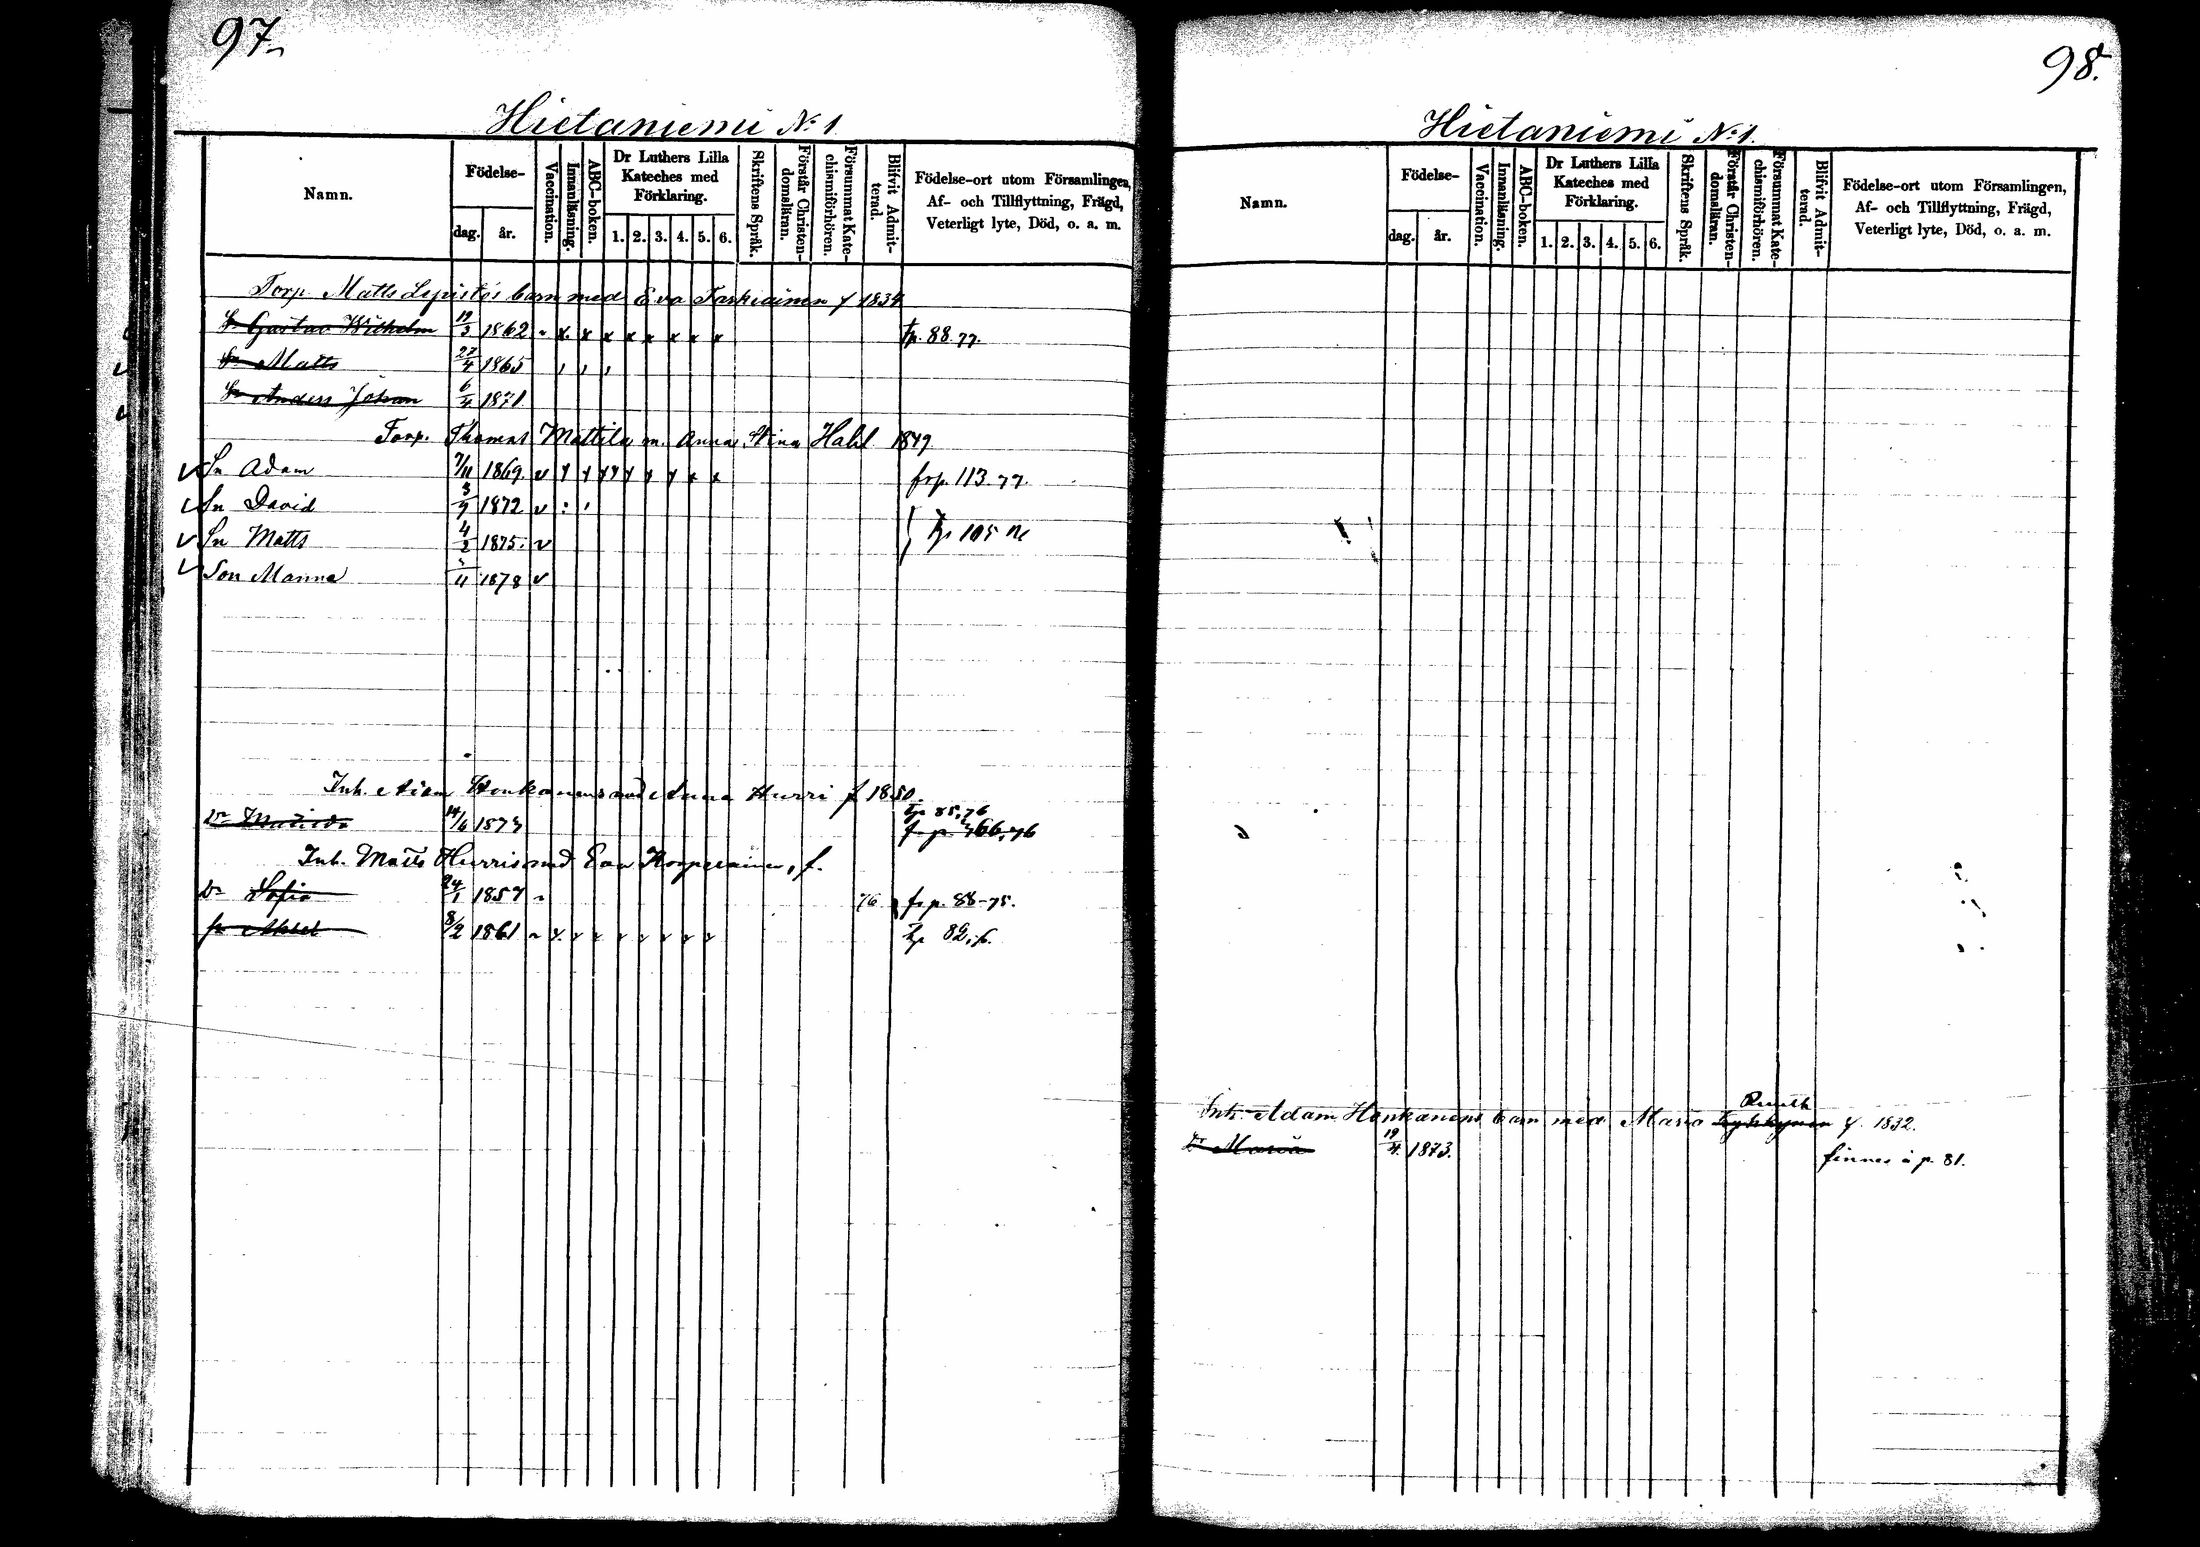 97
Hietaniemi No 1
Namn.
Födelse-
dag.
år.
Vaccination.
Innanläsning.
ABC-boken.
Dr Luthers Lilla Kateches med Förklaring.
1. 2. 3. 4. 5. 6.
Skriftens Språk.
Förstår Christendomsläran.
Försummat Katechismiförhören.
Blifvit Admitterad.
Födelse-ort utom Församlingen,
Af- och Tillflyttning, Frägd,
Veterligt lyte, Död, o. a. m.
Torp. Matts Lepistös barn med Eva Tarkiainen f 1834
Sn Gustav Wilhelm 19/3 1862 x x x x x x x x 88.77.
Sn Matts 27/4 1865
Sn Anders Johan 6/4 1871
Torp. Thomas Mattila m. Anna Stina Hahl 1849
Sn Adam 7/11 1869 v frp. 113.77.
Sn David 3/9 1872 v
Sn Matts 4/2 1875. v 105
Son Manna 11 1878 v
Inh. Honkanens med Anna Hurri f 1850.
Dr 14/6 1873 85,76
66,76
Inh. Matts Hurris med Eva f.
Dr Sofia 24/1 1857 76 frp. 88-75.
8/2 1861 82
98.
Hietaniemi No 1.
Namn.
Födelse-
dag.
år.
Vaccination.
Innanläsning.
ABC-boken.
Dr Luthers Lilla Kateches med Förklaring.
1. 2. 3. 4. 5. 6.
Skriftens Språk.
Förstår Christendomsläran.
Försummat Katechismiförhören.
Blifvit Admitterad.
Födelse-ort utom Församlingen,
Af- och Tillflyttning, Frägd,
Veterligt lyte, Död, o. a. m.
Inh. Adam Honkanens barn med Maria f. 1832.
Dr Maria 19/4 1873. finnes å p. 81.